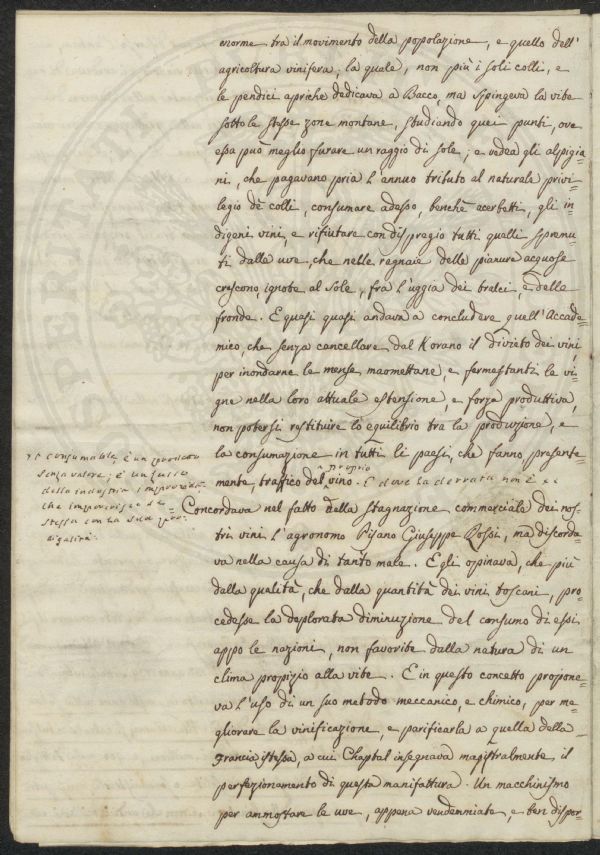 enorme tra il movimento della popolazione, e quello dell'
agricoltura vinifera; la quale, non più i soli colli, e
le pendici apriche dedicava a Bacco, ma spingeva la vite
sotto le stesse zone montane, studiando quei punti, ove
essa può meglio furare un raggio di sole; e vedea gli alpigia=
ni, che pagavano pria l'annuo tributo al naturale privi=
legio de' colli, consumare adesso, benchè acerbetti, gli in=
digeni vini, e rifiutare con dispregio tutti quelli spremu=
ti dalle uve, che nelle regnaie delle pianure acquose
crescono, ignote al sole, fra l'uggia dei tralci, e delle
fronde. E quasi quasi andava a concludere quell'Accade=
mico, che senza cancellare dal Korano il divieto dei vini,
per inondarne le mense maomettane, e fermestanti le vi=
gne nella loro attuale estensione, e forza produttiva,
non potersi restituire lo equilibrio tra la produzione, e
la consumazione in tutti li paesi, che fanno presente=
mente, traffico del proprio vino. E dove la derrata non è
consumabile è un prodotto
senza valore; è un
della industria
che impoverisce se
stessa con la sua pro=
digalità.
= Concordava nel fatto della stagnazione commerciale dei nos=
tri vini l'agronomo Pisano Giuseppe Rossi, ma discorda=
va nella causa di tanto male. Egli opinava, che più
dalla qualità, che dalla quantità dei vini toscani, pro=
cedesse la deplorata diminuzione del consumo di essi
appo le nazioni, non favorite dalla natura di un
clima propizio alla vite. E in questo concetto propone=
va l'uso di un suo metodo meccanico, e chimico, per me=
gliorare la vinificazione, e parificarla a quella della
Francia istessa, a cui Chaptal insegnava magistralmente il
perfezionamento di questa manifattura. Un macchinismo
per ammostare le uve, appena vendemmiate, e ben dispor=